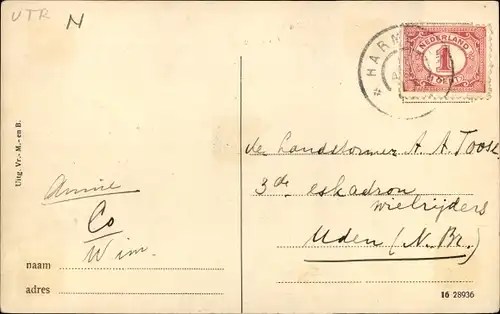 UTR N
HARM
NEDERLAND
1
CENT
Uitg. Vr.- M.- en B.
den Landstormer A. A. Toose
3de eskadron
wielrijders
Uden (N. Br.)
Annie
Co
Wim
naam
adres
16 28936